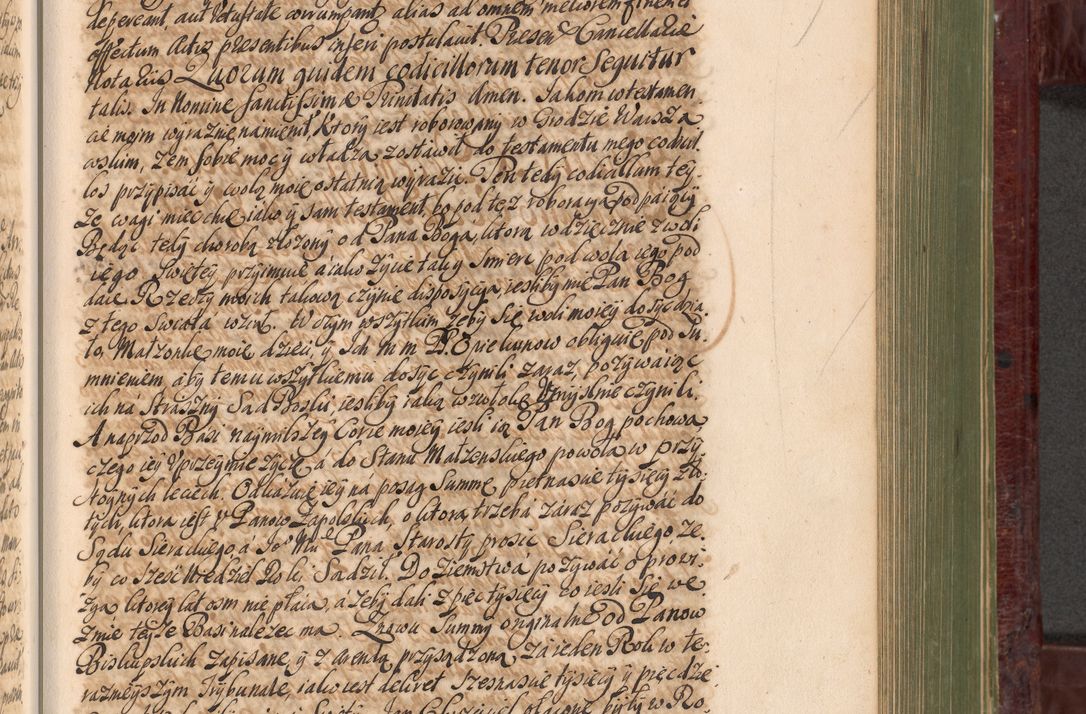 depereant, aut Vetustate corrumpant, alias ad omnem meliorem finem et
effectum Actis presentibus inseri postulavit. Presen: Cancellariæ
Notarius Quorum quidem codicillorum tenor Sequitur
talis. In Nomine Sanctissimæ Trinitatis Amen. Jakom w testamen:
cie moim wyraznie namienił, Ktory iest roborowany w Grodzie Warsza
wskim, Zem sobie mocy władzą zostawił do testamentu mego codicil
los przypisać y wolą moię ostatnią wyrazić. Ten tedy codicillum tey:
ze wagi mieć chcę iako y sam testament, bo pod tęz roboracyą podpaięty
Będąc tedy chorobą złozony od Pana Boga, ktorą wdzięcznie z woli
iego Swiętey przyimuię a iako zycie tak y Smierć pod wolą iego pod
daię. Rzeczy moich takową czynię dispositią, iesliby mię Pan Bog
z tego Swiata wziął. W czym wszytkim zeby się woli moiey dosyć dzia:
ło, Małzonkę moię dzieci, y Ich M m P. Opiekunow obliguię pod Su:
mnieniem, aby temu wszytkiemu dosyć czynili zaraz, pozywaiąc
ich na Straszny Sąd Boski, iesliby iaką wzwłokę Umyslnie czynili.
A naprzod Basi naymilszey Corce moiey, iesli ią Pan Bog pochowa
czego iey Uprzeymie zyczę, a do Stanu Małzenskiego powoła w przy:
stoynych leciech. Odkazuię iey na posag Summę pietnascie tysięcy zło:
tych, ktora iest u Panow Zapolskich, o ktorą trzeba zaraz pozywać do
Sądu Sieradzkiego, a Jeº Mci Pana Starosty prosić Sieradzkiego ze
by co sześć Niedziel Rolei Sądził. Do ziemstwa pozywać o prowi:
zyą ktorey lat osm nie płacą, a zeby dali z pięc tysięcy co iesli się we
zmie teyze Basi nalezec ma. Znowu Summy originalne od Panow
Biskupskich zapisane, y z Arendą przysądzoną, za ieden Rok w te:
raznieyszym Trybunale, iako iest dekret Szesnascie tysięcy y pięcdzie